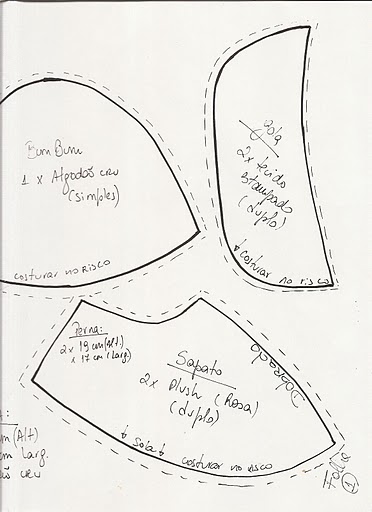 Bum Bum
1 x Algodão cru
(simples)
costurar no risco
gola
2x tecido
estampado
(duplo)
costurar no risco
Perna:
2x 19 cm (Alt.)
x 17 cm (Larg.)
Sapato
2x Plush (Rosa)
(duplo)
Dobrado
Sola
costurar no risco
m (Alt)
m Larg.
ão cru
Folha
1